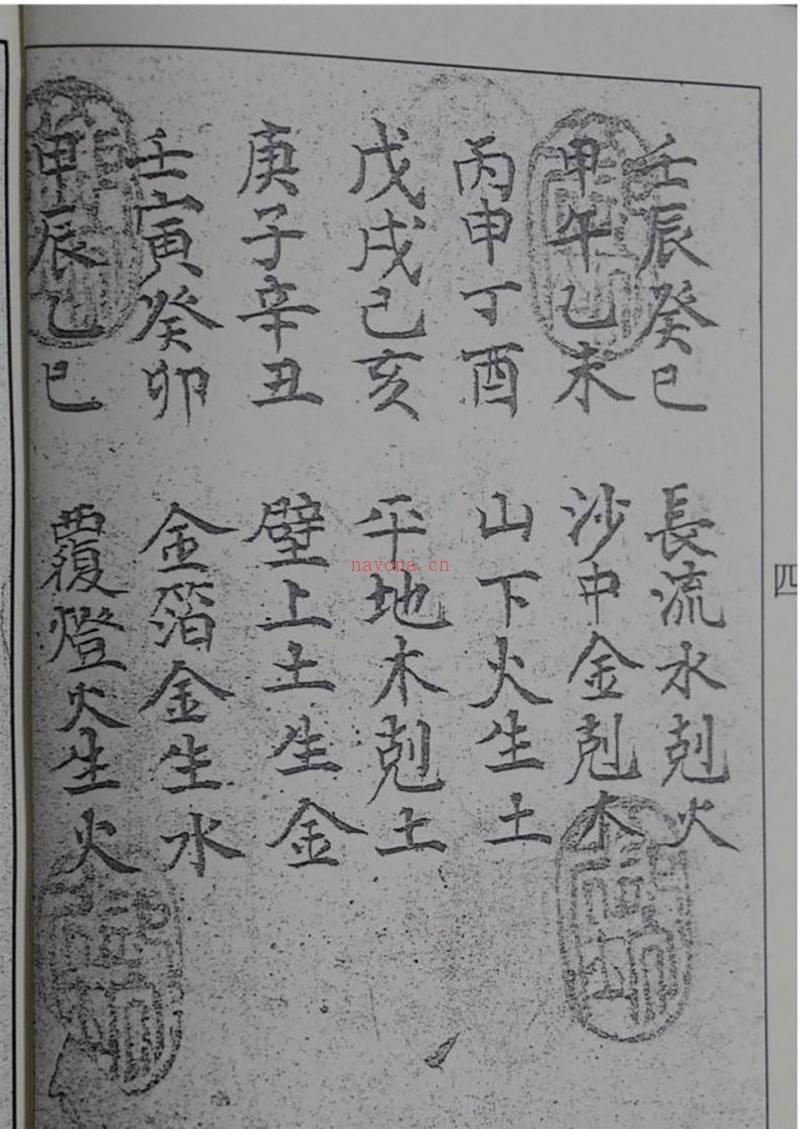 壬辰癸巳 長流水剋火
甲午乙未 沙中金剋木
丙申丁酉 山下火生土
戊戌己亥 平地木剋土
庚子辛丑 壁上土生金
壬寅癸卯 金箔金生水
甲辰乙巳 覆燈火生火
四
nayona.cn